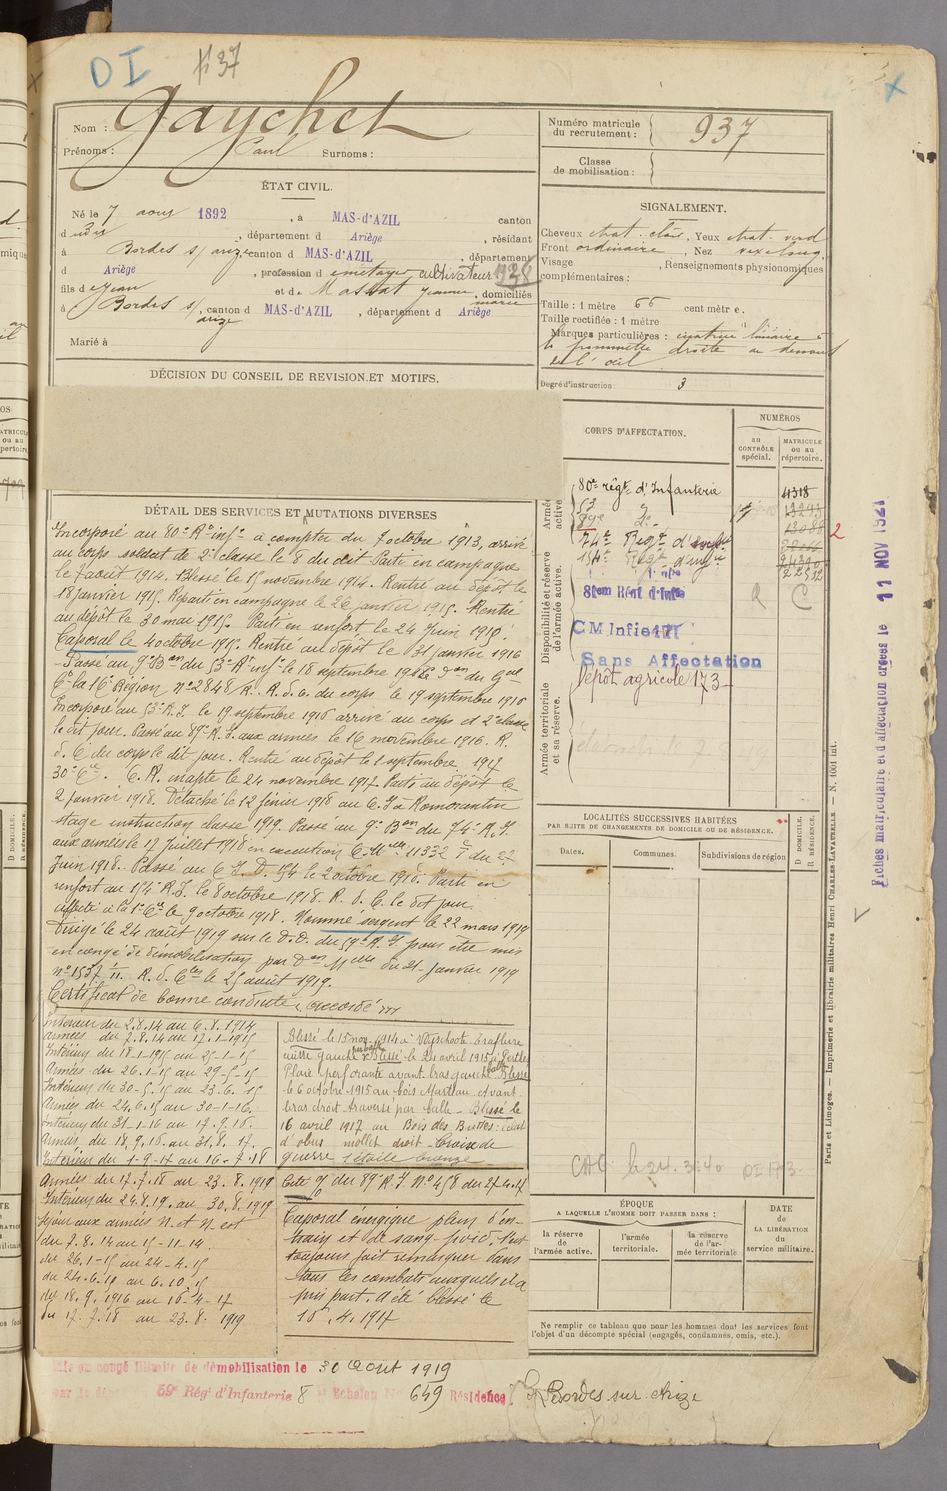 DI 137
Nom : Gaychet
Prénoms : Paul Surnoms :
Numéro matricule du recrutement : 937
Classe de mobilisation :
ÉTAT CIVIL.
Né le 7 aout 1892, à MAS-d'AZIL canton
d dudit, département d Ariège, résidant
à Bordes s/ arize canton d MAS-d'AZIL, département
d Ariège, profession d cultivateur
fils d Jean et de Massat Jeanne marie, domiciliés
à Bordes s/ arize, canton d MAS-d'AZIL, département d Ariège
Marié à
SIGNALEMENT.
Cheveux chat. clair, Yeux chat. verd
Front ordinaire, Nez
Visage, Renseignements physionomiques
complémentaires :
Taille : 1 mètre 66 centimètre.
Taille rectifiée : 1 mètre
Marques particulières : cicatrice linéaire à
la pommette droite au dessous
de l'œil
Degré d'instruction : 3
DÉCISION DU CONSEIL DE REVISION ET MOTIFS.
CORPS D'AFFECTATION.
NUMÉROS
au CONTRÔLE spécial.
MATRICULE ou au répertoire.
Armée active.
Disponibilité et réserve de l'armée active.
Armée territoriale et sa réserve.
80e régt d'Infanterie
53 d°
89e d°
74e Régt d'Inftie
154e Régt d'Inftie
81em Régt d'Infie
CM Infie 171
Sans Affectation
Dépôt agricole 173
4318
2
Q C
DÉTAIL DES SERVICES ET MUTATIONS DIVERSES
Incorporé au 80e Rt Infie à compter du 7 octobre 1913, arrivé
au corps soldat de 2e classe le 8 du dit. Parti en campagne
le 7 août 1914. Blessé le 15 novembre 1914. Rentré au dépôt le
18 janvier 1915. Reparti en campagne le 26 janvier 1915. Rentré
au dépôt le 30 mai 1915. Parti en renfort le 24 Juin 1915.
Caporal le 4 octobre 1915. Rentré au dépôt le 31 janvier 1916
Passé au 9e Bon du 53e R Infie le 18 septembre 1916 Don du Gal
Ct la 16e Région n° 2848 R. R. d. C. du corps le 19 septembre 1916
Incorporé au 53e R.I. le 19 septembre 1916 arrivé au corps et 2e classe
le dit jour. Passé au 89e R.I. aux armées le 16 novembre 1916. R.
d. C du corps le dit jour. Rentré au dépôt le 1 septembre 1917
30e Cie. C.R. inapte le 24 novembre 1917 Parti au dépôt le
2 janvier 1918. Détaché le 12 février 1918 au C.I. de Romorantin
stage instruction classe 1919. Passé au 9e Bon du 74e R.I.
aux armées le 17 Juillet 1918 en exécution C. Mlle 11332 du 27
Juin 1918. Passé au C.I.D. 154 le 2 octobre 1918. Parti en
renfort au 154 R.I. le 8 octobre 1918. R. d. C. le dit jour.
affecté à la 1e Cie le 9 octobre 1918. Nommé sergent le 22 mars 1919
Dirigé le 24 août 1919 sur le D.D. du 59e R.I. pour être mis
en congé de démobilisation par Don Mlle du 21 Janvier 1919
n° 1537. R. d. Ctes le 25 août 1919.
Certificat de bonne conduite accordé
Intérieur du 2.8.14 au 6.8.1914
Armées du 7.8.14 au 17.1.1915
Intérieur du 18-1-1915 au 25-1-15
Armées du 26.1-15 au 29-5-15
Intérieur du 30-5-15 au 23.6.15
Armées du 24.6.15 au 30-1-16.
Intérieur du 31-1-16 au 17.9.16.
Armées du 18.9.16 au 31.8.17.
Intérieur du 1-9-17 au 16-7.18
Armées du 17.7.18 au 23.8.1919
Intérieur du 24.8.19 au 30.8.1919
Séjour aux armées N. et N. est
du 7.8.14 au 15-11-14
du 26.1-15 au 24-4.15
du 24.6.15 au 6.10.15
du 18.9.1916 au 16-4-17
du 17.7.18 au 23.8.1919
Blessé le 15 nov. 1914 à éraflure
cuisse gauche par balle Blessé le 24 avril 1915
Plaie perforante avant bras gauche balle Blessé
le 6 octobre 1915 au bois Marteau avant
bras droit traversé par balle - Blessé le
16 avril 1917 au Bois des Buttes : éclat
d'obus mollet droit - Croix de
guerre 1 étoile bronze
Cité O/ du 89e R.I. N° 458 du 27.4.17
Caporal énergique plein d'en-
train et de sang-froid, s'est
toujours fait remarquer dans
tous les combats auxquels il a
pris part. A été blessé le
16.4.1917
LOCALITÉS SUCCESSIVES HABITÉES
PAR SUITE DE CHANGEMENTS DE DOMICILE OU DE RÉSIDENCE.
Dates. Communes. Subdivisions de région
D DOMICILE. R RÉSIDENCE.
ÉPOQUE
A LAQUELLE L'HOMME DOIT PASSER DANS :
la réserve de l'armée active.
l'armée territoriale.
la réserve de l'armée territoriale
DATE de LA LIBÉRATION du service militaire.
Ne remplir ce tableau que pour les hommes dont les services font
l'objet d'un décompte spécial (engagés, condamnés, omis, etc.).
Mis en congé illimité de démobilisation le 30 Août 1919
par le dépôt 59e Régt d'Infanterie 8 Echelon N° 649 Résidence Bordes-sur-Arize
Fiches matriculaire et d'affectation créées le 11 NOV 1921
Paris et Limoges. — Imprimerie et librairie militaires Henri CHARLES-LAVAUZELLE. — N. 1001 int.